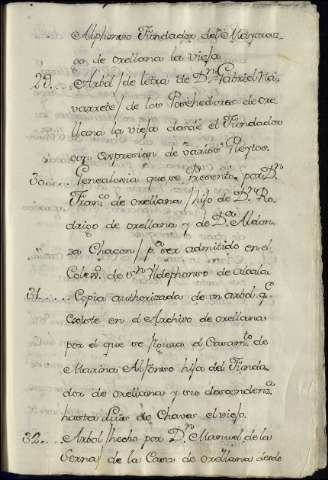 Alphonso Fundador del Mayoraz-
go de orellana la vieja
29.... Arbol / de letra de Dn. Gabriel Na-
varrete / de los Posehedores de ore-
llana la vieja desde el Fundador
con expresion de varios Pleytos.
30.... Genealogia que se presentó por Dn.
Franco. de orellana / hijo de Dn. Ro-
drigo de orellana y de Da. Aldon-
za Chacon / pa. ser admitido en el
Colexo. de Sn. Yldephonso de Alcala
31..... Copia authorizada de un arbol q.
existe en el Archivo de orellana
por el que se figura el Casamto. de
Marina Alfonso hija del Funda-
dor de orellana y sus descendens.
hasta Luis de Chaves el viejo.
32.... Arbol / hecho por Dn. Manuel de la
Serna / de la Casa de orellana desde